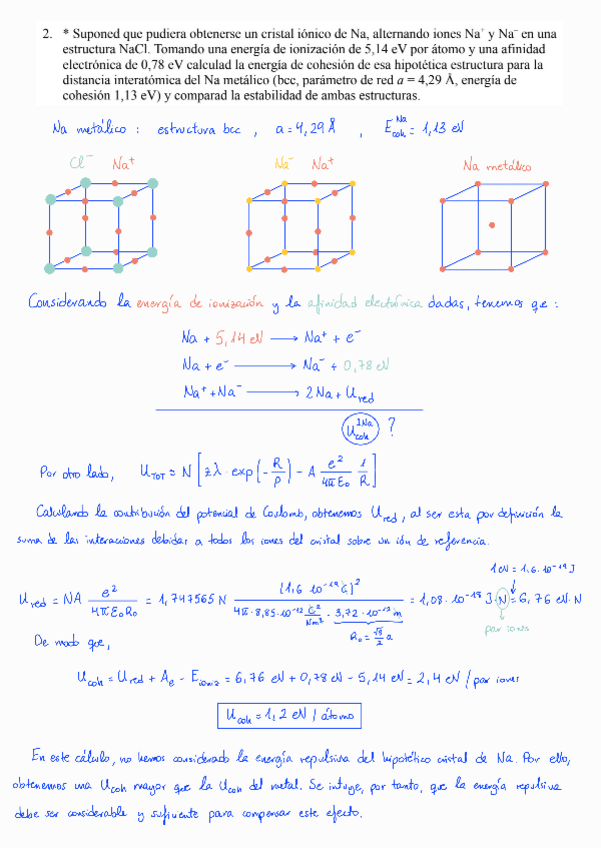 2. * Suponed que pudiera obtenerse un cristal iónico de Na, alternando iones Na⁺ y Na⁻ en una
estructura NaCl. Tomando una energía de ionización de 5,14 eV por átomo y una afinidad
electrónica de 0,78 eV calculad la energía de cohesión de esa hipotética estructura para la
distancia interatómica del Na metálico (bcc, parámetro de red a = 4,29 Å, energía de
cohesión 1,13 eV) y comparad la estabilidad de ambas estructuras.
Na metálico : estructura bcc , a = 4,29 Å , E_coh^Na = 1,13 eV
Cl⁻ Na⁺ Na⁻ Na⁺ Na metálico
Considerando la energía de ionización y la afinidad electrónica dadas, tenemos que :
Na + 5,14 eV ⟶ Na⁺ + e⁻
Na + e⁻ ⟶ Na⁻ + 0,78 eV
Na⁺ + Na⁻ ⟶ 2 Na + U_red
U_coh^2Na ?
Por otro lado, U_TOT = N [ zλ · exp(-R/ρ) - A e²/4πε₀ 1/R ]
Calculando la contribución del potencial de Coulomb, obtenemos U_red, al ser esta por definición la
suma de las interacciones debidas a todos los iones del cristal sobre un ión de referencia.
1 eV = 1,6 · 10⁻¹⁹ J
U_red = NA e²/4πε₀R₀ = 1,747565 N (1,6 10⁻¹⁹ C)² / 4π · 8,85·10⁻¹² C²/Nm² · 3,72·10⁻¹⁰ m = 1,08 · 10⁻¹⁸ J · N = 6,76 eV · N
R₀ = √3/2 a
par iones
De modo que,
U_coh = U_red + A_e - E_ioniz = 6,76 eV + 0,78 eV - 5,14 eV = 2,4 eV / par iones
U_coh = 1,2 eV / átomo
En este cálculo, no hemos considerado la energía repulsiva del hipotético cristal de Na. Por ello,
obtenemos una U_coh mayor que la U_coh del metal. Se intuye, por tanto, que la energía repulsiva
debe ser considerable y suficiente para compensar este efecto.